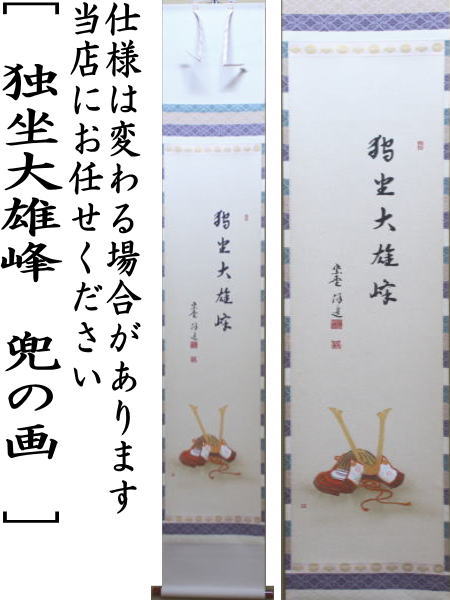 仕様は変わる場合があります
当店にお任せください
[独坐大雄峰 兜の画]
獨坐大雄峰
獨坐大雄峰